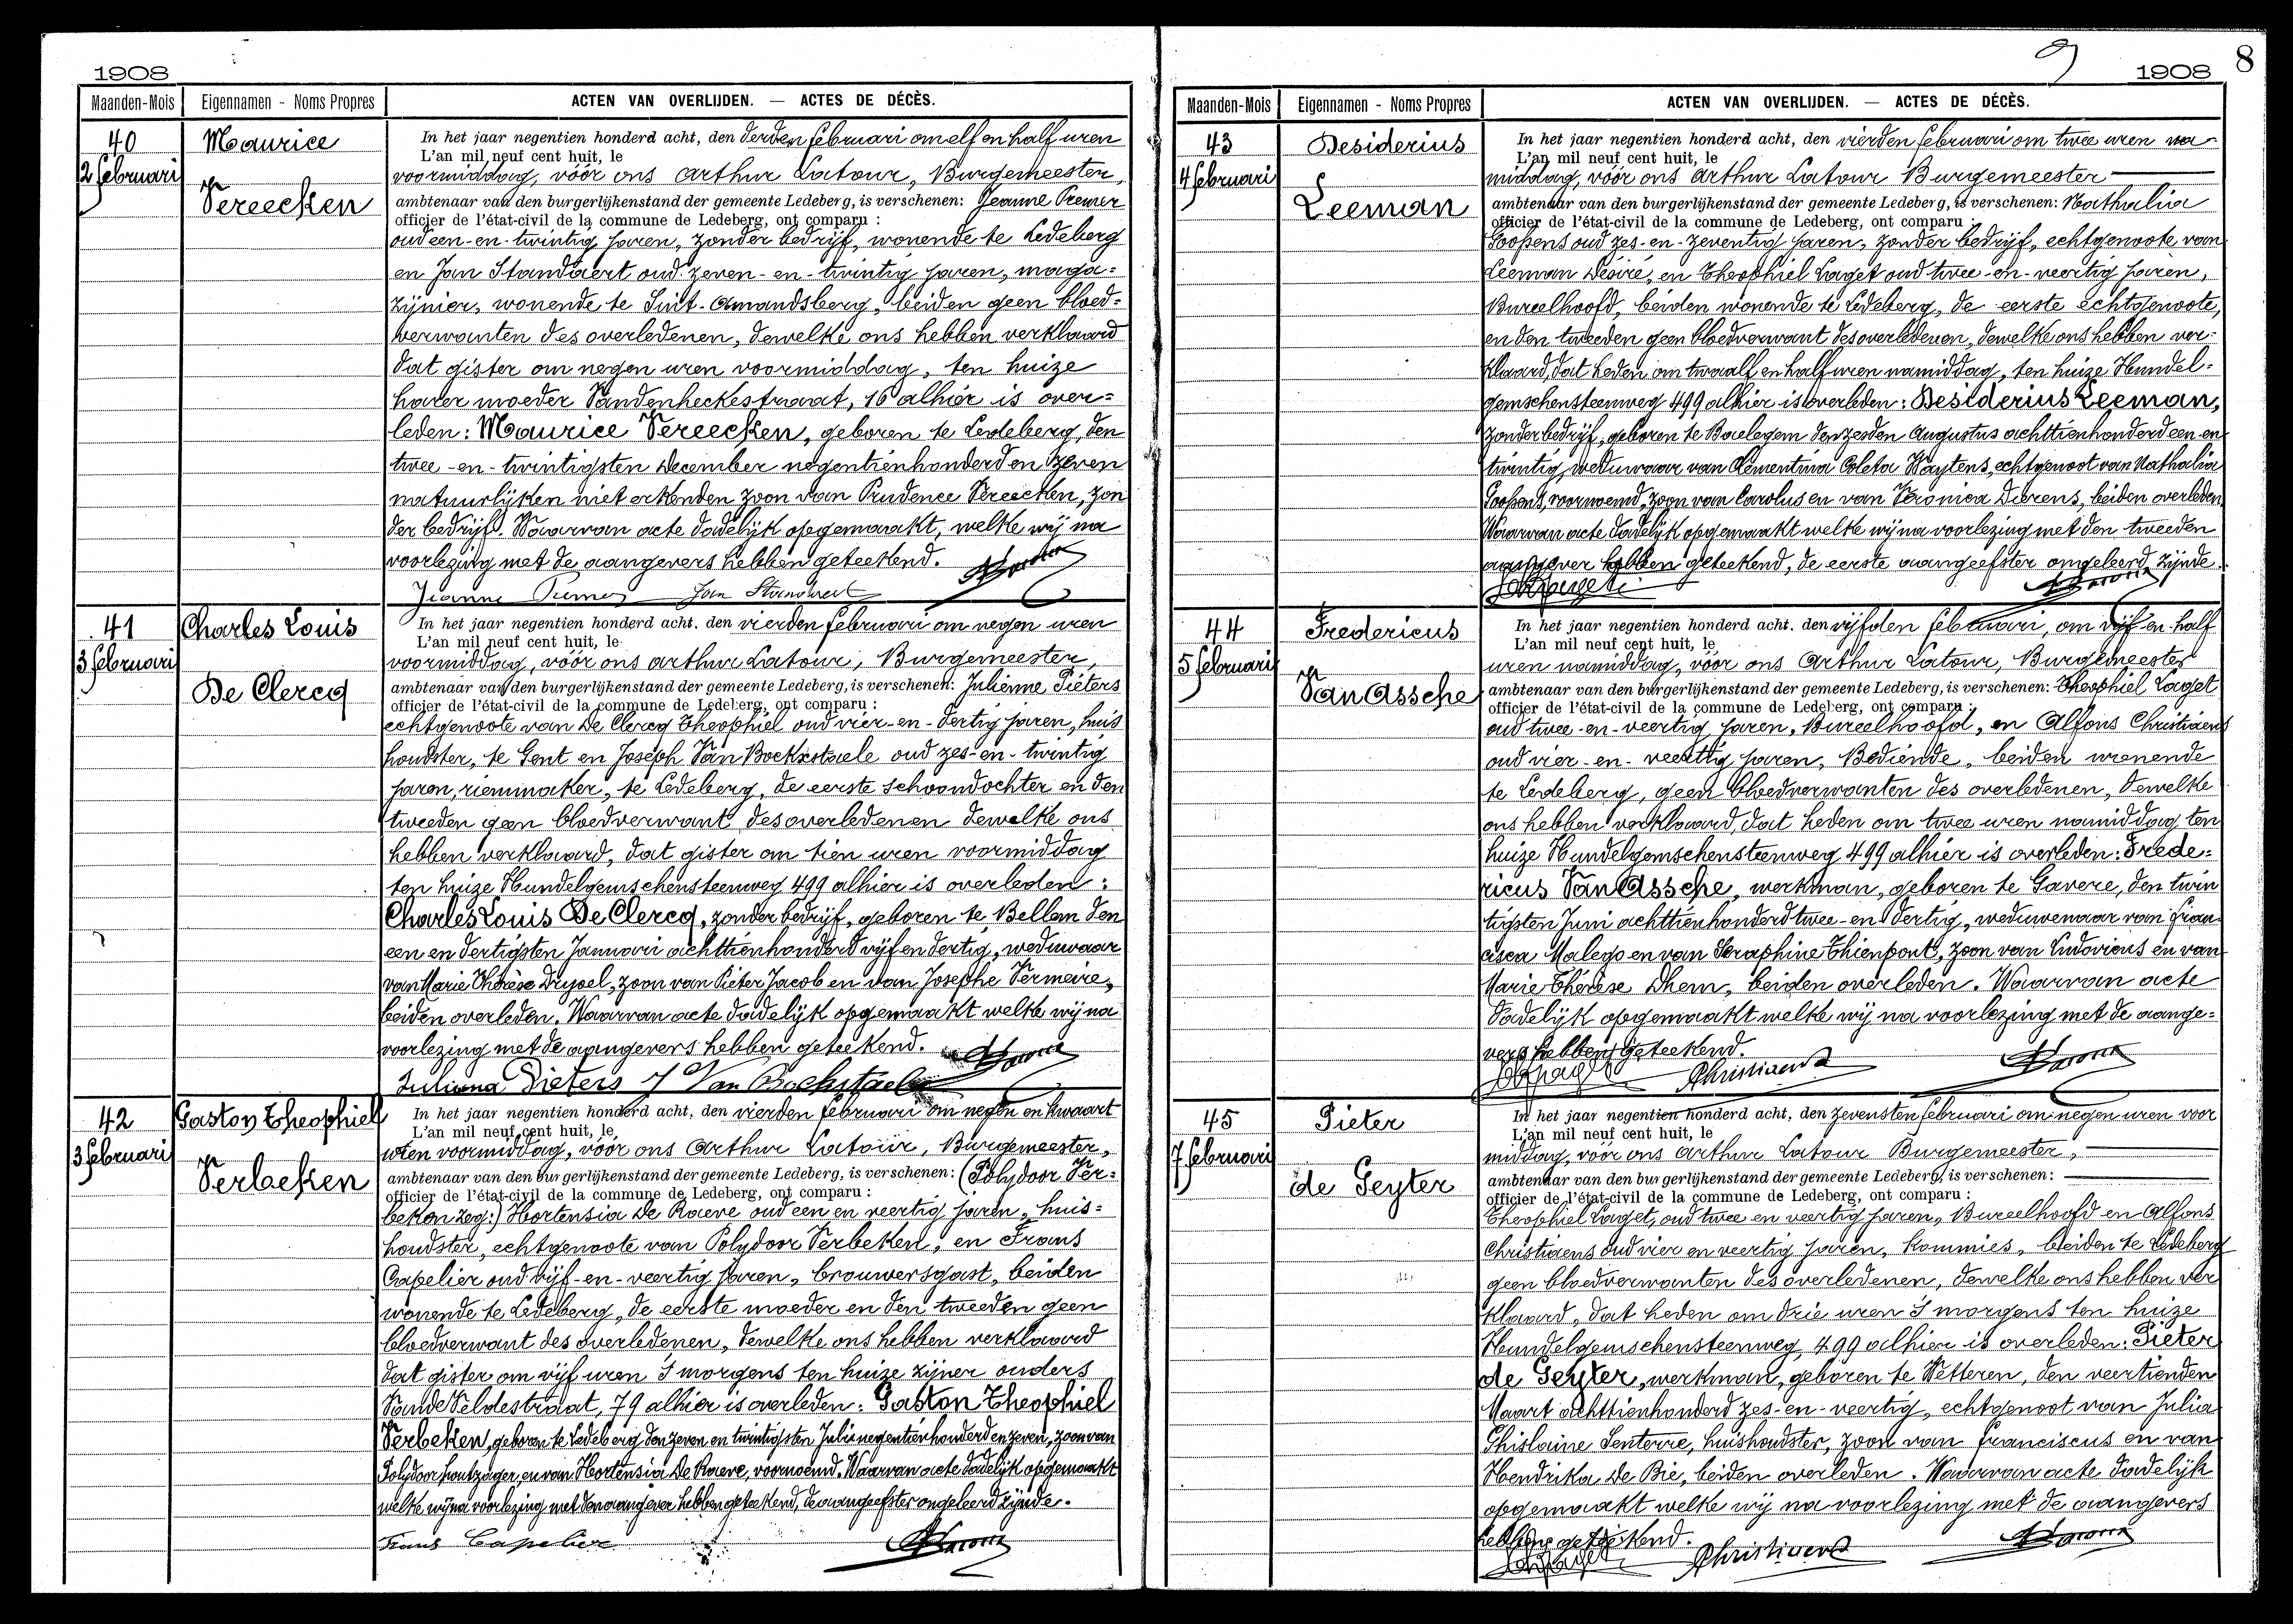 1908
Maanden-Mois Eigennamen - Noms Propres ACTEN VAN OVERLIJDEN. — ACTES DE DÉCÈS.
40
2 februari
Maurice
Vereecken
In het jaar negentien honderd acht, den derden februari om elf en half uren
L'an mil neuf cent huit, le
voormiddag, vóór ons Arthur Latour, Burgemeester,
ambtenaar van den burgerlijkenstand der gemeente Ledeberg, is verschenen: Jeanne
officier de l'état-civil de la commune de Ledeberg, ont comparu :
oud een-en-twintig jaren, zonder bedrijf, wonende te Ledeberg
en Jan Standaert oud zeven-en-twintig jaren, maga=
zijnier, wonende te Sint-Amandsberg, beiden geen bloed=
verwanten des overledenen, dewelke ons hebben verklaard
dat gister om negen uren voormiddag, ten huize
harer moeder Vandenheckestraat, 16 alhier is over=
leden: Maurice Vereecken, geboren te Ledeberg, den
twee-en-twintigsten December negentienhonderd en zeven
natuurlijken niet erkenden zoon van Prudence Vereecken, zon
der bedrijf. Waarvan acte dadelijk opgemaakt, welke wij na
voorlezing met de aangevers hebben geteekend.
Jeanne Jan Standaert
41
3 februari
Charles Louis
De Clercq
In het jaar negentien honderd acht, den vierden februari om negen uren
L'an mil neuf cent huit, le
voormiddag, vóór ons Arthur Latour, Burgemeester,
ambtenaar van den burgerlijkenstand der gemeente Ledeberg, is verschenen: Julienne Pieters
officier de l'état-civil de la commune de Ledeberg, ont comparu :
echtgenoote van De Clercq Theophiel oud vier-en-dertig jaren, huis
houdster, te Gent en Joseph Van Bockxstaele oud zes-en-twintig
jaren, riemmaker, te Ledeberg, de eerste schoondochter en den
tweeden geen bloedverwant des overledenen dewelke ons
hebben verklaard, dat gister om tien uren voormiddag
ten huize Hundelgemschensteenweg 499 alhier is overleden:
Charles Louis De Clercq, zonder bedrijf, geboren te Bellem den
een en dertigsten Januari achttienhonderd vijf en dertig, weduwaar
van Marie Thérèse Dryoel, zoon van Pieter Jacob en van Josephe Vermeire,
beiden overleden. Waarvan acte dadelijk opgemaakt welke wij na
voorlezing met de aangevers hebben geteekend.
Juliana Pieters J Van Bockstaele
42
3 februari
Gaston Theophiel
Verbeken
In het jaar negentien honderd acht, den vierden februari om negen en kwaart
L'an mil neuf cent huit, le
uren voormiddag, vóór ons Arthur Latour, Burgemeester,
ambtenaar van den burgerlijkenstand der gemeente Ledeberg, is verschenen: (Polydoor Ver=
officier de l'état-civil de la commune de Ledeberg, ont comparu :
beken zeg:) Hortensia De Raeve oud een en veertig jaren, huis=
houdster, echtgenoote van Polydoor Verbeken, en Frans
Capelier oud vijf-en-veertig jaren, brouwersgast, beiden
wonende te Ledeberg, de eerste moeder en den tweeden geen
bloedverwant des overledenen, dewelke ons hebben verklaard
dat gister om vijf uren 's morgens ten huize zijner ouders
Vande Veldestraat, 79 alhier is overleden: Gaston Theophiel
Verbeken, geboren te Ledeberg den zeven en twintigsten Juli negentienhonderd en zeven, zoon van
Polydoor houtzager, en van Hortensia De Raeve, voornoemd. Waarvan acte dadelijk opgemaakt
welke wij na voorlezing met den aangever hebben geteekend, de aangeefster ongeleerd zijnde.
Frans Capelier
9
1908 8
Maanden-Mois Eigennamen - Noms Propres ACTEN VAN OVERLIJDEN. — ACTES DE DÉCÈS.
43
4 februari
Desiderius
Leeman
In het jaar negentien honderd acht, den vierden februari om twee uren na
L'an mil neuf cent huit, le
middag, vóór ons Arthur Latour Burgemeester
ambtenaar van den burgerlijkenstand der gemeente Ledeberg, is verschenen: Nathalia
officier de l'état-civil de la commune de Ledeberg, ont comparu :
Goossens oud zes-en-zeventig jaren, zonder bedrijf, echtgenoote van
Leeman Désiré, en Theophiel Laget oud twee-en-veertig jaren,
Bureelhoofd, beiden wonende te Ledeberg, de eerste echtgenoote,
en den tweeden geen bloedverwant des overledenen, dewelke ons hebben ver=
klaard, dat heden om twaalf en half uren namiddag, ten huize Hundel=
gemschensteenweg 499 alhier is overleden: Desiderius Leeman,
zonder bedrijf, geboren te Baelegem den zesden Augustus achttienhonderd een en
twintig, weduwaar van Clementina Coleta Waytens, echtgenoot van Nathalia
Goossens, voornoemd, zoon van Carolus en van Veronica Dierens, beiden overleden.
Waarvan acte dadelijk opgemaakt welke wij na voorlezing met den tweeden
aangever hebben geteekend, de eerste aangeefster ongeleerd zijnde.
44
5 februari
Fredericus
Van Assche
In het jaar negentien honderd acht, den vijfden februari, om vijf en half
L'an mil neuf cent huit, le
uren namiddag, vóór ons Arthur Latour, Burgemeester
ambtenaar van den burgerlijkenstand der gemeente Ledeberg, is verschenen: Theophiel Laget
officier de l'état-civil de la commune de Ledeberg, ont comparu :
oud twee-en-veertig jaren, Bureelhoofd, en Alfons Christiaens
oud vier-en-veertig jaren, Bediende, beiden wonende
te Ledeberg, geen bloedverwanten des overledenen, dewelke
ons hebben verklaard, dat heden om twee uren namiddag ten
huize Hundelgemschensteenweg 499 alhier is overleden: Frede=
ricus Van Assche, werkman, geboren te Gavere, den twin
tigsten Juni achttienhonderd twee-en-dertig, weduwenaar van Fran
cisca Malego en van Seraphine Thienpont, zoon van Ludovicus en van
Marie Thérèse Dhem, beiden overleden. Waarvan acte
dadelijk opgemaakt welke wij na voorlezing met de aange=
vers hebben geteekend.
AChristiaens
45
7 februari
Pieter
de Geyter
In het jaar negentien honderd acht, den zevensten februari om negen uren voor
L'an mil neuf cent huit, le
middag, vóór ons Arthur Latour Burgemeester,
ambtenaar van den burgerlijkenstand der gemeente Ledeberg, is verschenen:
officier de l'état-civil de la commune de Ledeberg, ont comparu :
Theophiel Laget, oud twee en veertig jaren, Bureelhoofd en Alfons
Christiaens oud vier en veertig jaren, kommies, beiden te Ledeberg
geen bloedverwanten des overledenen, dewelke ons hebben ver
klaard, dat heden om drie uren 's morgens ten huize
Hundelgemschensteenweg, 499 alhier is overleden: Pieter
de Geyter, werkman, geboren te Wetteren, den veertienden
Maart achttienhonderd zes-en-veertig, echtgenoot van Julia
Ghislaine Senterre, huishoudster, zoon van Franciscus en van
Hendrika De Bie, beiden overleden. Waarvan acte dadelijk
opgemaakt welke wij na voorlezing met de aangevers
hebben geteekend.
AChristiaens